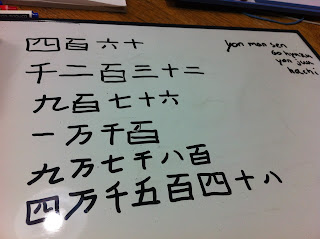 四百六十
千二百三十二
九百七十六
一万千百
九万七千八百
四万千五百四十八
yon man sen
go hyaku
yon juu
hachi